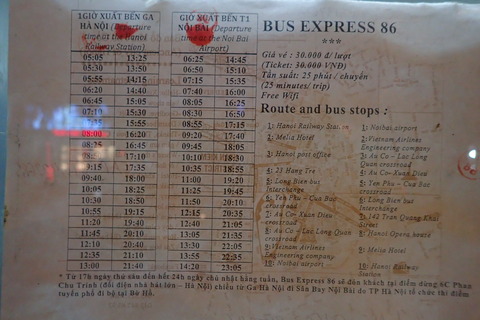 1GIỜ XUẤT BẾN GA
HÀ NỘI (Departure
time at the Hanoi
Railway Station)
05:05 13:25
05:30 13:50
05:55 14:15
06:20 14:40
06:45 15:05
07:10 15:30
07:35 15:55
08:00 16:20
08:25 16:45
17:10
09:15 17:35
09:40 18:00
10:05 18:25
10:30 18:50
10:55 19:15
11:20 19:40
11:45 20:10
12:10 20:40
12:35 21:10
13:00 21:40
GIỜ XUẤT BẾN T1
NỘI BÀI (Departure
time at the Noi Bai
Airport)
06:25 14:45
06:50 15:10
07:15 15:35
07:40 16:00
08:05 16:25
08:30 16:50
08:55 17:15
09:20 17:40
09:45 18:05
10:10 18:30
10:35 18:55
11:00 19:20
11:25 19:45
11:50 20:10
12:15 20:35
12:40 21:05
13:05 21:35
13:30 22:05
13:55 22:35
14:20 23:05
BUS EXPRESS 86
***
Giá vé : 30.000 đ/ lượt
(Ticket: 30.000 VNĐ)
Tần suất: 25 phút / chuyến
(25 minutes/ trip)
Free Wifi
Route and bus stops :
1: Hanoi Railway Station
2: Melia Hotel
3: Hanoi post office
4: 23 Hang Tre
5: Long Bien bus
Interchange
6: Yen Phu – Cua Bac
crossroad
7: Au Co– Xuan Dieu
crossroad
8: Au Co – Lac Long
Quan crossroad
9: Vietnam Airlines
Engineering company
10: Noibai airport
1: Noibai airport
2: Vietnam Airlines
Engineering company
3: Au Co – Lac Long
Quan crossroad
4: Au Co–Xuan Dieu
5: Yen Phu – Cua Bac
crossroad
6: Long Bien bus
Interchange
7: 142 Tran Quang Khai
Street
8: Hanoi Opera house
9: Melia Hotel
10: Hanoi Railway
Station
* Từ 17h ngày thứ sáu đến hết 24h ngày chủ nhật hàng tuần, Bus Express 86 sẽ đón khách tại điểm dừng 6C Phan
Chu Trinh (đối diện nhà hát lớn – Hà Nội) chiều từ Ga Hà Nội đi Sân Bay Nội Bài do TP Hà Nội tổ chức thí điểm
tuyến phố đi bộ tại Bờ Hồ.